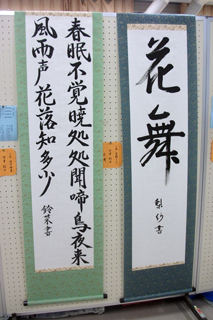 花舞
梨紗書
春眠不覚暁処処聞啼鳥夜来
風雨声花落知多少
鈴菜書